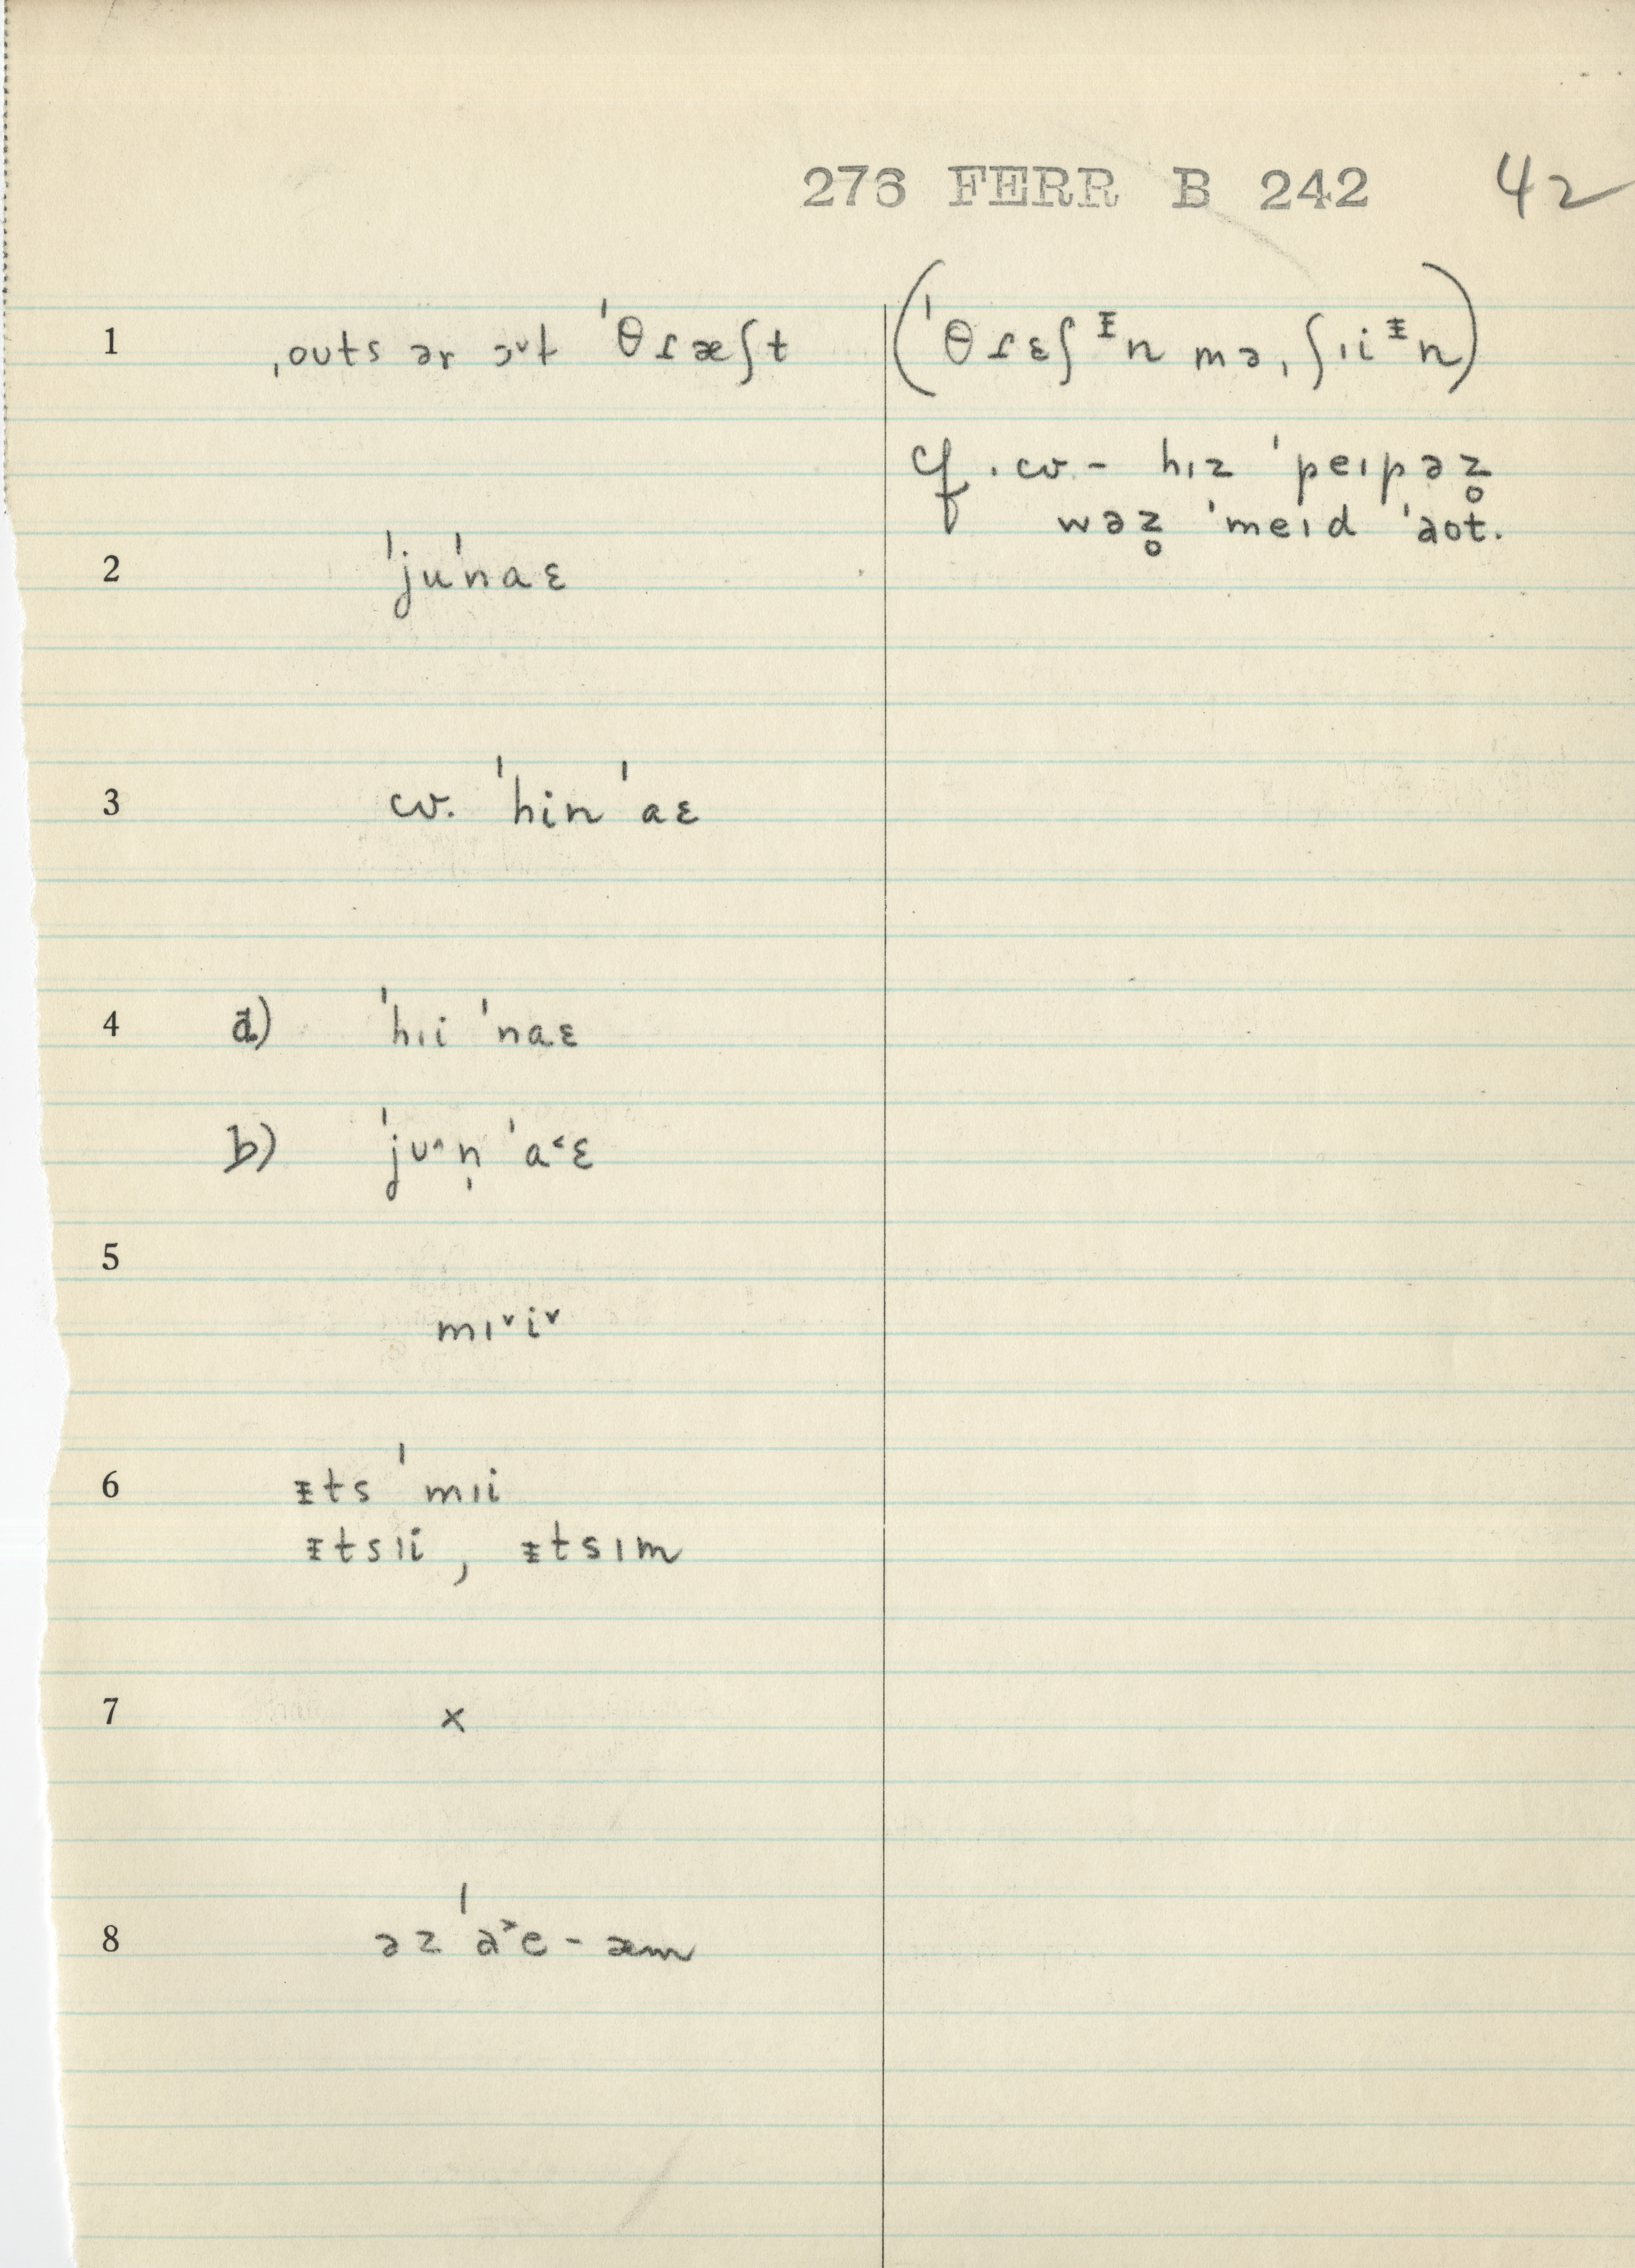 276 FERR B 242 42
1 ˌouts ər ɔᵛt ˈθɾæʃt (ˈθɾɛʃᵻn məˌʃɪiᵻn)
cf. cv – hɪz ˈpeɪpəz̥
wəz̥ ˈmeɪd ˈaʊt.
2 ˈjuˈnaɛ
3 cv. ˈhin ˈaɛ
4 a) ˈhɪi ˈnaɛ
b) ˈjʊ^n̩ ˈa˂ɛ
5
mɪ˅i˅
6 ᵻts ˈmɪi
ᵻtsɪi, ᵻtsɪm
7 x
8 əz ˈa˃e – æm